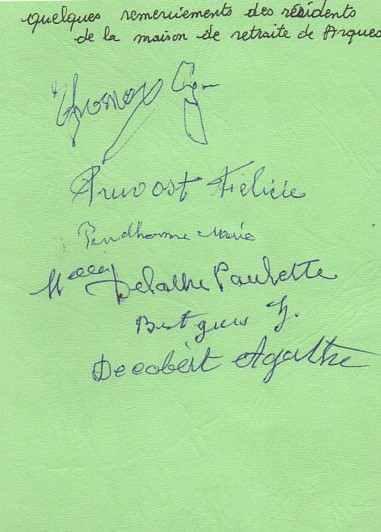 quelques remerciements des résidents
de la maison de retraite de Arques
Pruvost Félicie
Prudhomme Marie
Melle Delattre Paulette
J.
Decobert Agathe